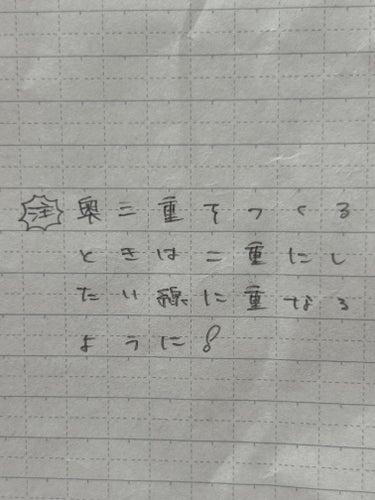 注 奥二重をつくる
ときは二重にし
たい線に重なる
ように!